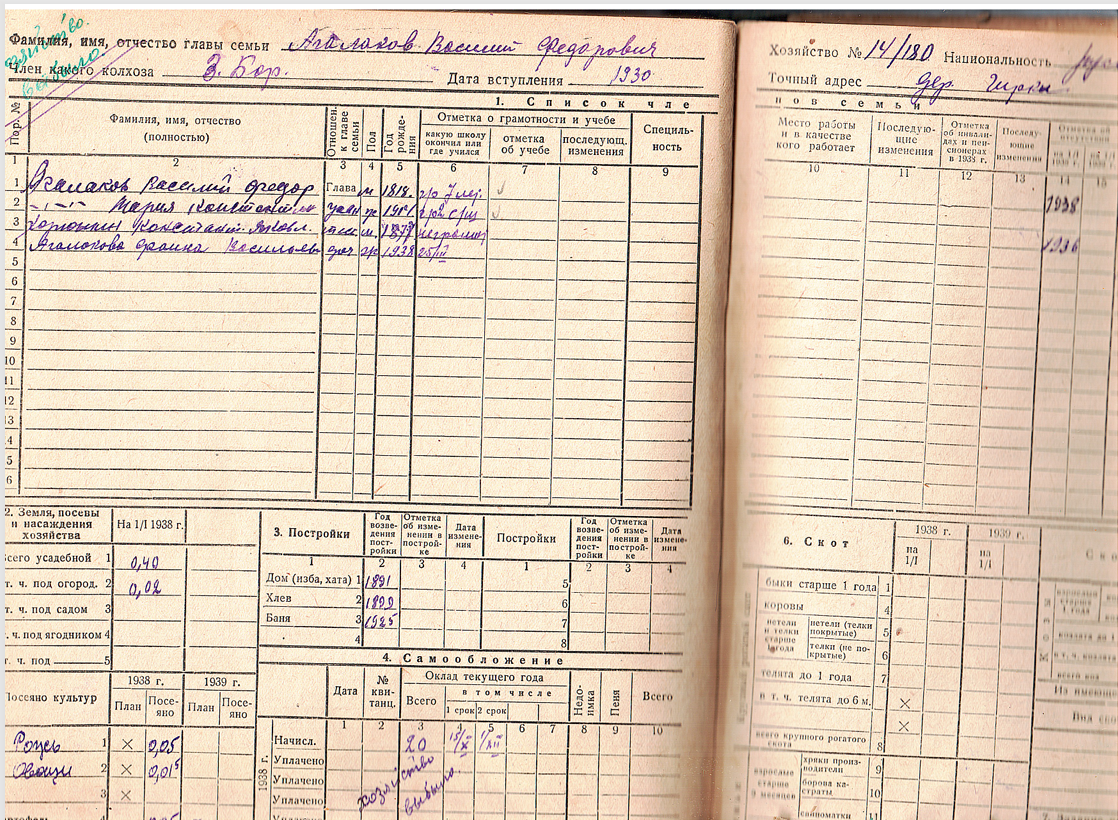 хозяйство
выбыло
Фамилия, имя, отчество главы семьи Агалаков Василий Федорович
Член какого колхоза З. Бор. Дата вступления 1930
1. Список чле
Пор. №
Фамилия, имя, отчество (полностью)
Отношен. к главе семьи
Пол
Год рождения
Отметка о грамотности и учебе
какую школу окончил или где учился
отметка об учебе
последующ. изменения
Специальность
1 2 3 4 5 6 7 8 9
1 Агалаков Василий Федор Глава м
2 Мария Константин
3 Константин Яковл.
4 Агалакова Фаина Васильев доч 1938 25/III
5
6
7
8
9
10
11
12
13
4
5
6
2. Земля, посевы и насаждения хозяйства На 1/I 1938 г.
сего усадебной 1 0,40
т. ч. под огород. 2 0,02
т. ч. под садом 3
. ч. под ягодником 4
т. ч. под 5
Посеяно культур
1938 г. 1939 г.
План Посеяно План Посеяно
Рожь 1 × 0,05
Овощи 2 × 0,01⁵
3 ×
3. Постройки
Год возведения постройки
Отметка об изменении в постройке
Дата изменения
Постройки
Год возведения постройки
Отметка об изменении в постройке
Дата изменения
1 2 3 4 1 2 3 4
Дом (изба, хата) 1 1891 5
Хлев 2 1899 6
Баня 3 1925 7
4 8
4. Самообложение
Дата
№ квитанц.
Оклад текущего года
Всего
в том числе
1 срок 2 срок 6 7
Недоимка
Пеня
Всего
1 2 3 4 5 6 7 8 9 10
1938 г.
Начисл. 20 15/X 1/XII
Уплачено
Уплачено
Уплачено
хозяйство
выбыло
Хозяйство № 14/180 Национальность
Точный адрес Дер.
нов семьи
Место работы и в качестве кого работает
Последующие изменения
Отметка об инвалидах и пенсионерах в 1938 г.
Последующие изменения
10 11 12 13 14 15
1938
1936
6. Скот
1938 г. 1939 г.
на 1/I на 1/I
быки старше 1 года 1
коровы 4
нетели и телки старше 1 года
нетели (телки покрытые) 5
телки (не покрытые) 6
телята до 1 года 7
в т. ч. телята до 6 м. ×
×
всего крупного рогатого скота 8
взрослые старше 9 месяцев
хряки производители 9
борова кастраты 10
свиноматки 11